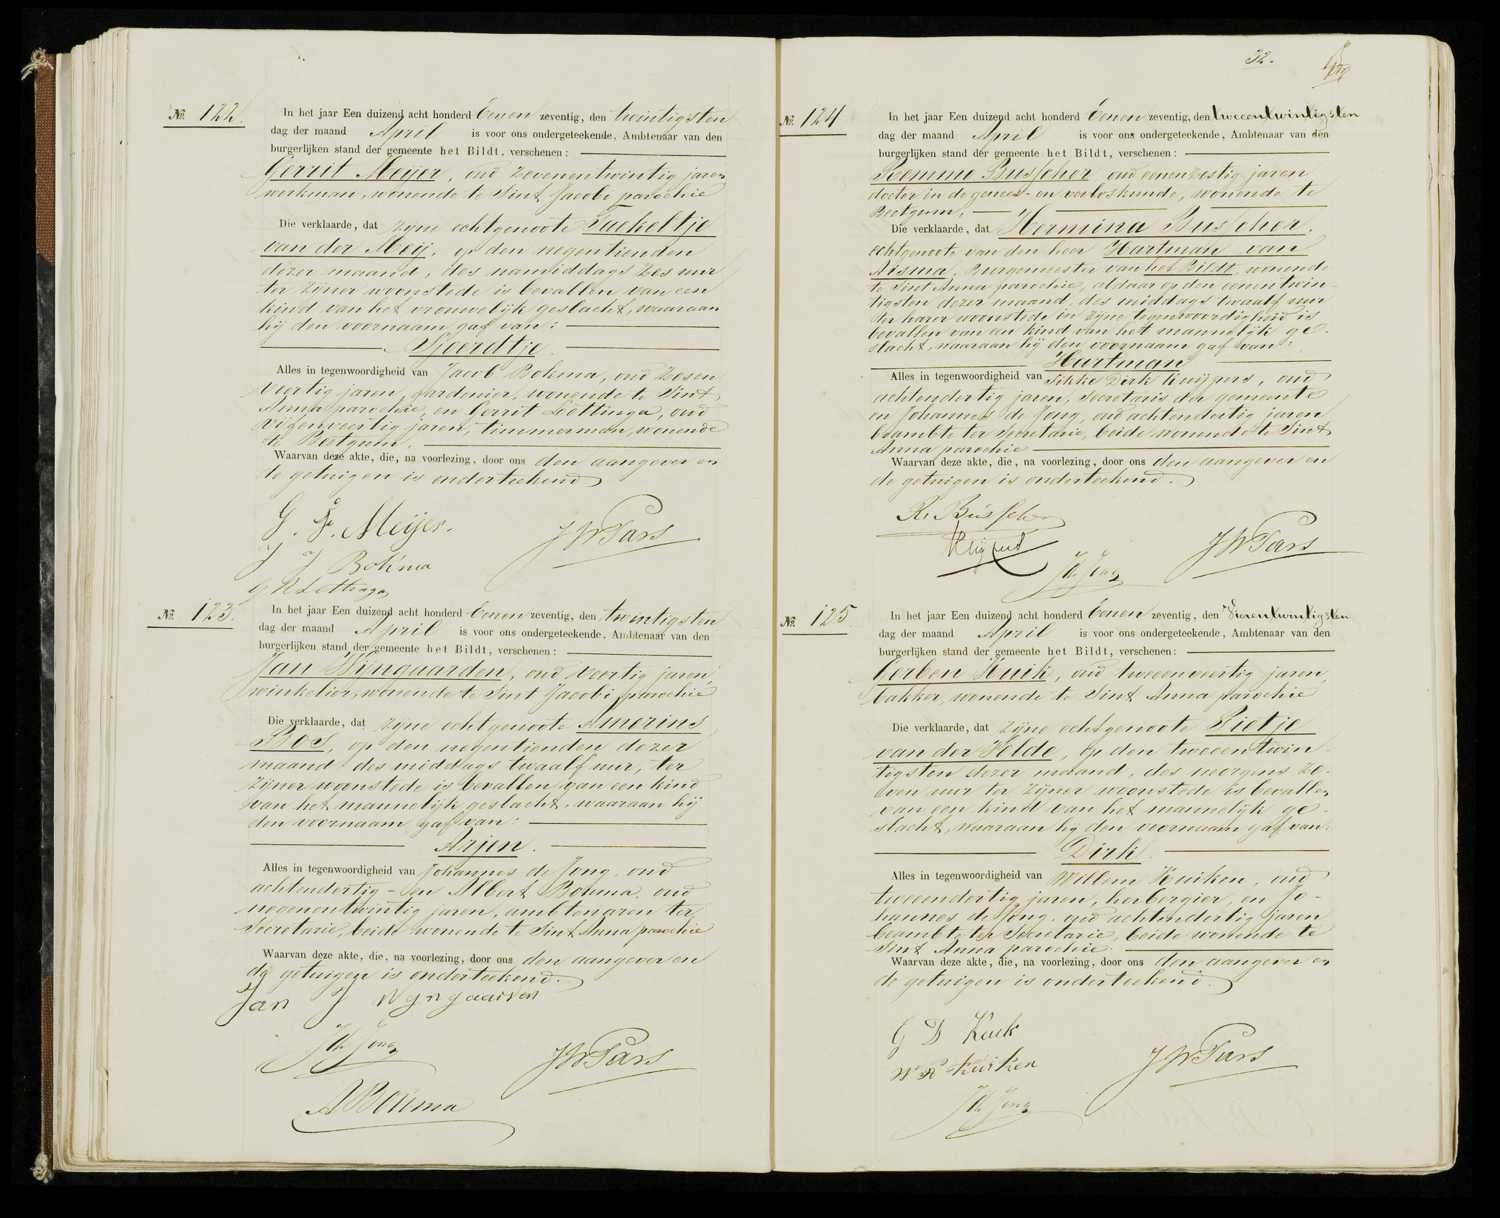 No. 122.
In het jaar Een duizend acht honderd Eenen zeventig, den twintigsten
dag der maand April is voor ons ondergeteekende, Ambtenaar van den
burgerlijken stand der gemeente het Bildt, verschenen:
Gerrit Meijer, oud zevenentwintig jaren
werkman, wonende te Sint Jacobi parochie
Die verklaarde, dat zijne echtgenoote Jackeltje
van der Meij, op den negentienden
dezer maand, des namiddags zes uur
ter zijner woonstede is bevallen van een
kind van het vrouwelijk geslacht, waaraan
hij den voornaam gaf van:
Sjoerdtje.
Alles in tegenwoordigheid van Jacob Bokma, oud zesen
veertig jaren, gardenier, wonende te Sint
Anna parochie, en Gerrit Lettinga, oud
vijfenveertig jaren, timmerman, wonende
te Beetgum.
Waarvan deze akte, die, na voorlezing, door ons den aangever en
de getuigen is onderteekend
G. F. Meijer.
J W Pars
J J Bokma
G R Lettinga
No. 123.
In het jaar Een duizend acht honderd Eenen zeventig, den twintigsten
dag der maand April is voor ons ondergeteekende, Ambtenaar van den
burgerlijken stand der gemeente het Bildt, verschenen:
Jan Wijngaarden, oud veertig jaren
winkelier, wonende te Sint Jacobi parochie
Die verklaarde, dat zijne echtgenoote Amerins
Bos, op den negentienden dezer
maand des middags twaalf uur, ter
zijner woonstede is bevallen van een kind
van het mannelijk geslacht, waaraan hij
den voornaam gaf van:
Arjen.
Alles in tegenwoordigheid van Johannes de Jong, oud
achtendertig - en Albert Bouma, oud
negenentwintig jaren, ambtenaren ter
Secretarie, beide wonende te Sint Anna parochie
Waarvan deze akte, die, na voorlezing, door ons den aangever en
de getuigen is onderteekend.
Jan J Wijngaarden
JdeJong
J W Pars
A Bouma
32.
No. 124
In het jaar Een duizend acht honderd Eenen zeventig, den tweeentwintigsten
dag der maand April is voor ons ondergeteekende, Ambtenaar van den
burgerlijken stand der gemeente het Bildt, verschenen:
Remmo Busscher oud eenenzestig jaren
doctor in de genees- en verloskunde, wonende te
Beetgum,
Die verklaarde, dat Hermina Busscher,
echtgenoote van den heer Hartman van
Aisma, Burgemeester van het Bildt, wonende
te Sint Anna parochie, aldaar op den eenentwin-
tigsten dezer maand, des middags twaalf uur
ter harer woonstede in zijne tegenwoordigheid is
bevallen van een kind van het mannelijk ge-
slacht, waaraan hij den voornaam gaf van:
Hartman
Alles in tegenwoordigheid van Sikke Dirk Kuijpers, oud
achtendertig jaren, Secretaris der gemeente
en Johannes de Jong, oud achtendertig jaren
beambte ter Secretarie, beide wonende te Sint
Anna parochie
Waarvan deze akte, die, na voorlezing, door ons den aangever en
de getuigen is onderteekend.
R. Busscher
J W Pars
JdeJong
No. 125
In het jaar Een duizend acht honderd Eenen zeventig, den Vierentwintigsten
dag der maand April is voor ons ondergeteekende, Ambtenaar van den
burgerlijken stand der gemeente het Bildt, verschenen:
Gerben Kuik, oud tweeenveertig jaren,
bakker, wonende te Sint Anna parochie
Die verklaarde, dat zijne echtgenoote Pietje
van der Velde, op den tweeentwin-
tigsten dezer maand, des morgens ze-
ven uur ter zijner woonstede is bevallen
van een kind van het mannelijk ge-
slacht, waaraan hij den voornaam gaf van:
Dirk.
Alles in tegenwoordigheid van Willem Kuiken, oud
tweeendertig jaren, herbergier, en Jo-
hannes de Jong, oud achtendertig jaren
beambte ter Secretarie, beide wonende te
Sint Anna parochie.
Waarvan deze akte, die, na voorlezing, door ons den aangever en
de getuigen is onderteekend.
G D Kuik
W R Kuiken
J W Pars
JdeJong